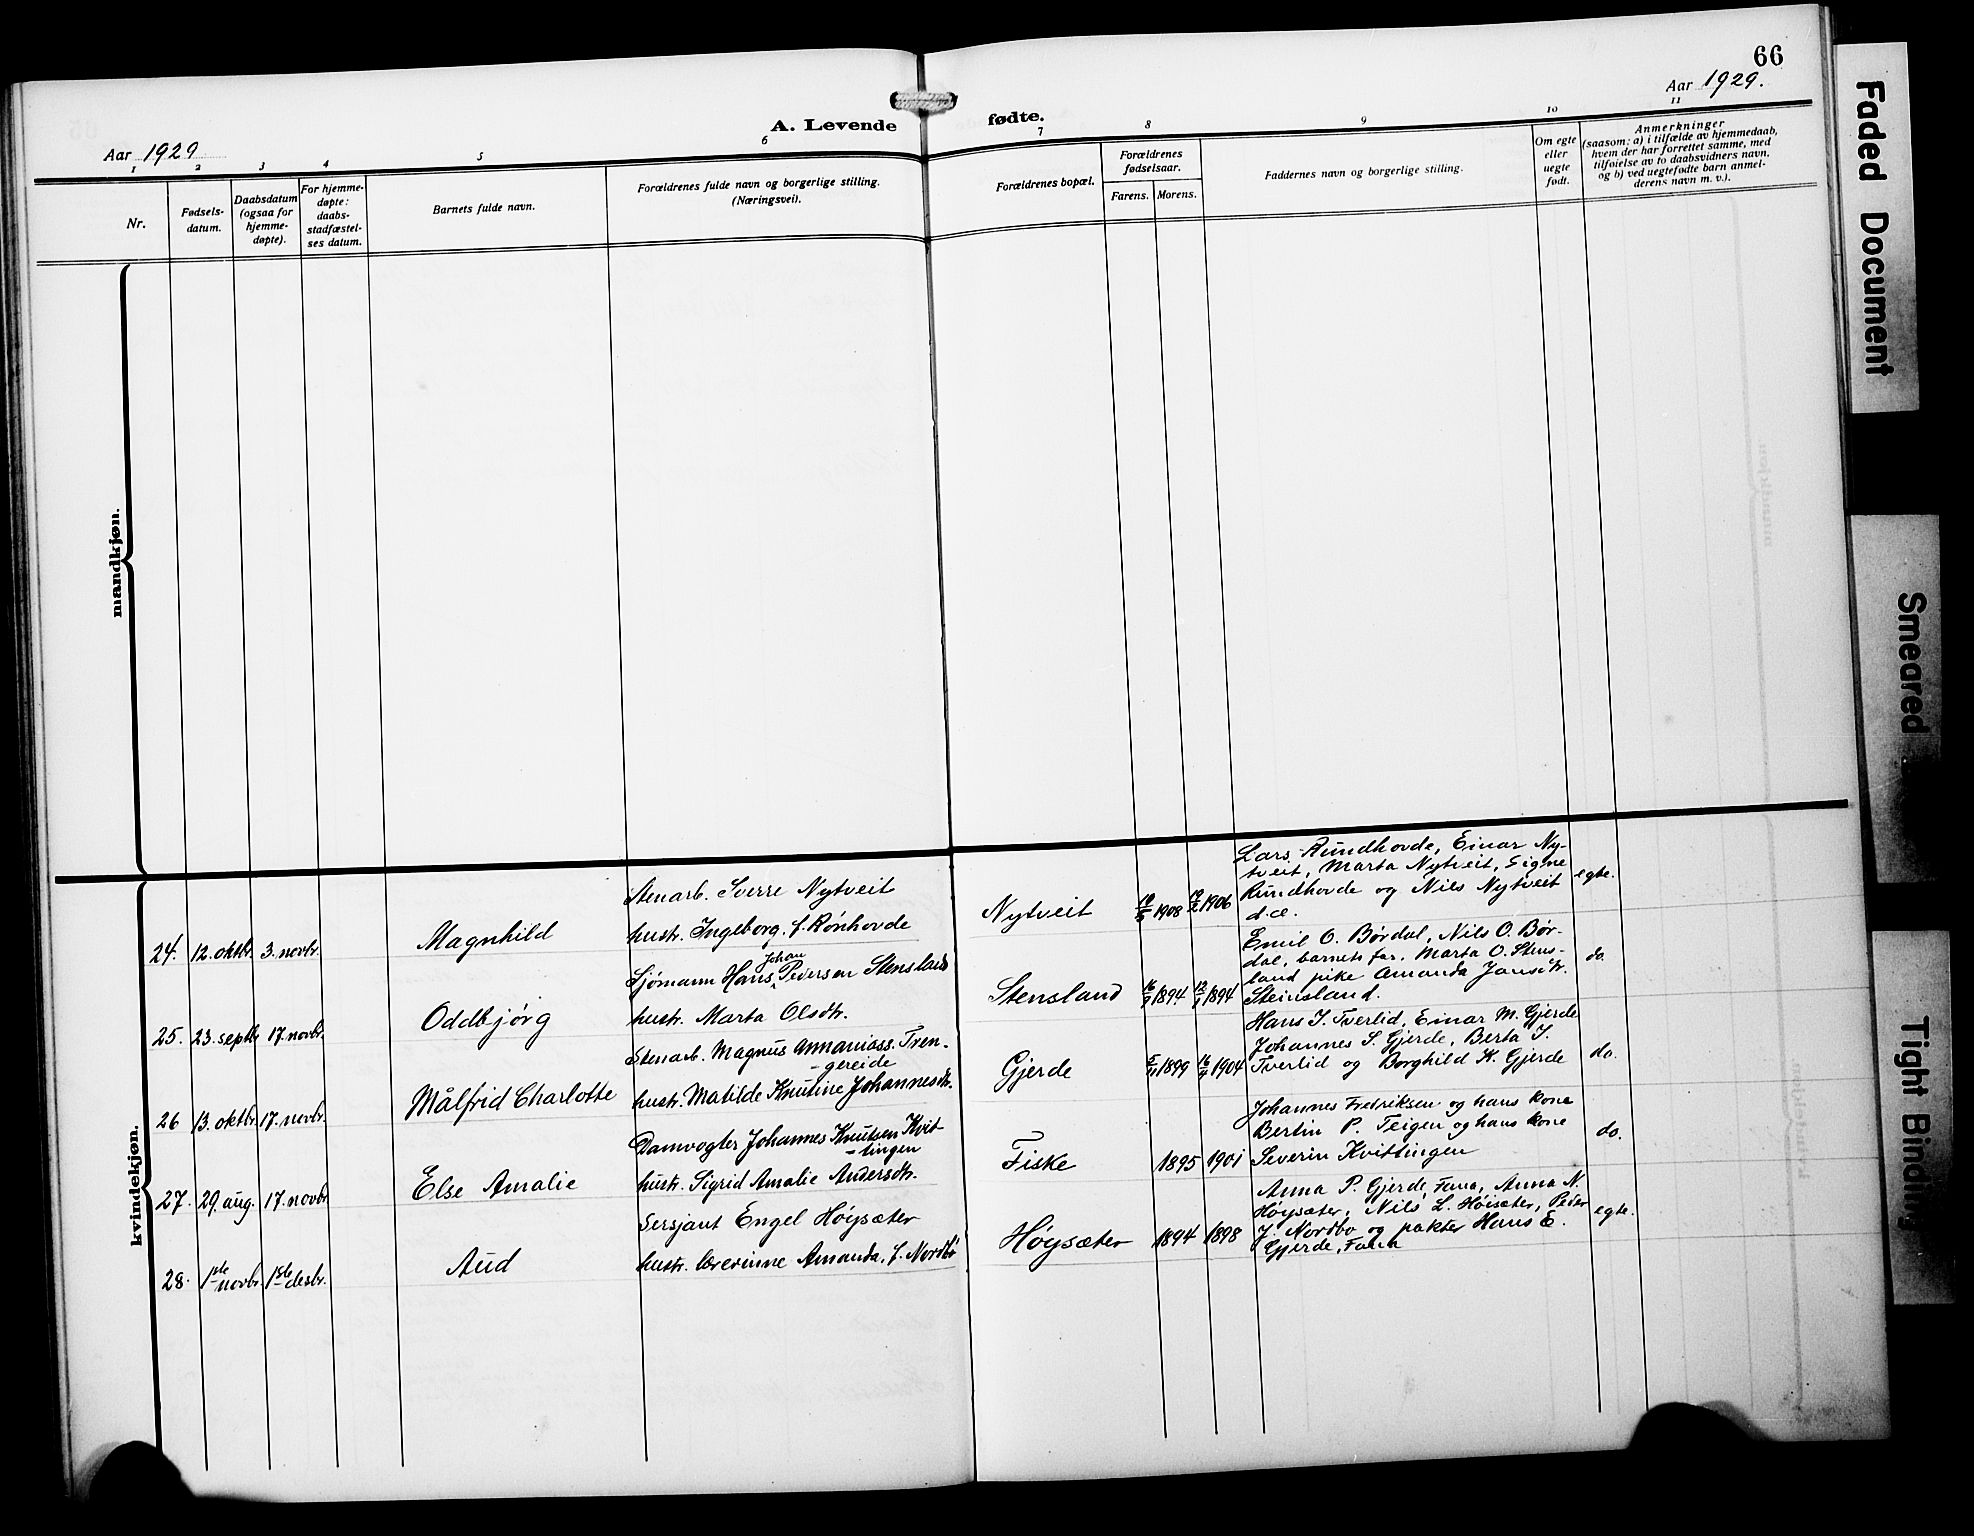 66
Aar 1929
A. Levende fødte.
Aar 1929.
1 2 3 4 5 6 7 8 9 10 11
Nr.
Fødsels-
datum.
Daabsdatum
(ogsaa for
hjemme-
døpte).
For hjemme-
døpte:
daabs-
stadfæstel-
ses datum.
Barnets fulde navn.
Forældrenes fulde navn og borgerlige stilling.
(Næringsvei).
Forældrenes bopæl.
Forældrenes
fødselsaar.
Farens. Morens.
Faddernes navn og borgerlige stilling.
Om egte
eller
uegte
født.
Anmerkninger
(saasom: a) i tilfælde av hjemmedaab,
hvem der har forrettet samme, med
tilføielse av to daabsvidners navn.
og b) ved uegtefødte barn anmel-
derens navn m. v.).
mandkjøn.
kvindekjøn.
24. 12. oktbr. 3. novbr. Magnhild
Stenarb. Sverre Nytveit
hustr. Ingeborg, f. Rønhovde
Nytveit 1908 1906
Lars Rundhovde, Einar Ny-
tveit, Marta Nytveit, Signe
Rundhovde og Nils Nytveit
d.æ.
egte.
25. 23. septbr. 17. novbr. Oddbjørg
Sjømann Hans Johan Pedersen Stensland
hustr. Marta Olsdtr.
Stensland 16/9 1894 1894
Emil O. Børdal, Nils O. Bør-
dal, barnets far, Marta O. Stens-
land pike Amanda Jansdtr.
Steinsland.
do.
26 13. oktbr. 17. novbr. Målfrid Charlotte
Stenarb. Magnus Annaniass. Tren-
-gereide
hustr. Matilde Knutine Johannesdtr.
Gjerde 1899 1904
Hans J. Tverlid, Einar M. Gjerde
Johannes S. Gjerde, Berta J.
Tverlid og Borghild K. Gjerde
do.
27. 29. aug. 17. novbr. Else Amalie
Damvogter Johannes Knutsen Kvit-
-tingen
hustr. Sigrid Amalie Andersdtr.
Fiske 1895 1901
Johannes Fredriksen og hans kone
Bertin P. Teigen og hans kone
Severin Kvittingen
do.
28. 1ste novbr. 1ste desbr. Aud
Sersjant Engel Høysæter
hustr. lærerinne Amanda, f. Nordbø
Høysæter 1894 1898
Anna P. Gjerde, Fana, Anna N.
Høysæter, Nils L. Høisæter, Peder
J. Nordbø og pakter Hans E.
Gjerde, Fana
egte.
Faded Document
Smeared
Tight Binding